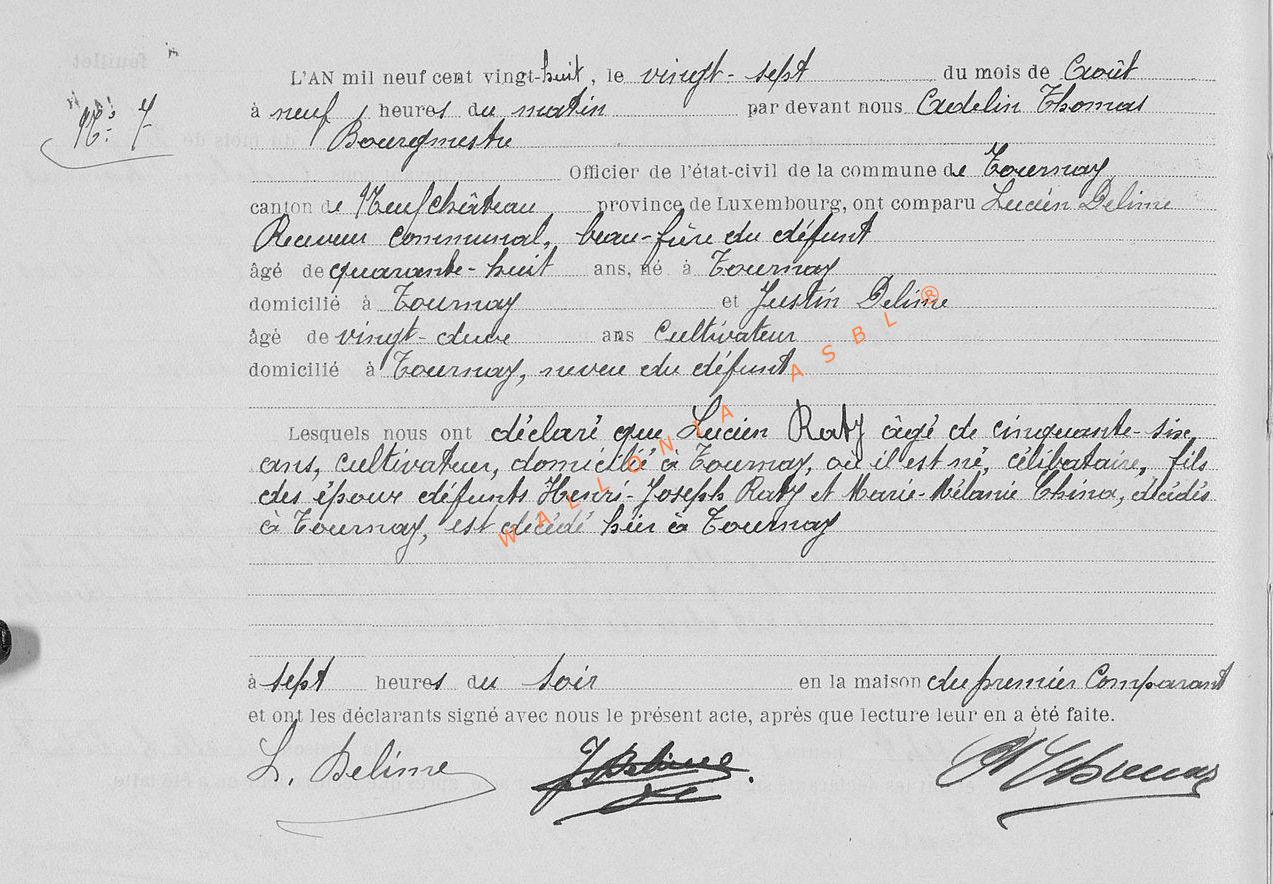 L'AN mil neuf cent vingt-huit, le vingt-sept du mois de Août
N° 7
à neuf heures du matin par devant nous Cadelin Thomas
Bourgmestre
Officier de l'état-civil de la commune de Tournay
canton de Neufchâteau province de Luxembourg, ont comparu Lucien Delime
Receveur communal, beau-frère du défunt
âgé de quarante-huit ans, né à Tournay
domicilié à Tournay et Justin Delime
âgé de vingt-deux ans Cultivateur
domicilié à Tournay, neveu du défunt
Lesquels nous ont déclaré que Lucien Raty âgé de cinquante-six
ans, cultivateur, domicilié à Tournay, où il est né, célibataire, fils
des époux défunts Henri-Joseph Raty et Marie-Mélanie China, décédés
à Tournay, est décédé hier à Tournay
WALLONIA ASBL ®
à sept heures du soir en la maison du premier Comparant
et ont les déclarants signé avec nous le présent acte, après que lecture leur en a été faite.
L. Delime J Delime Thomas